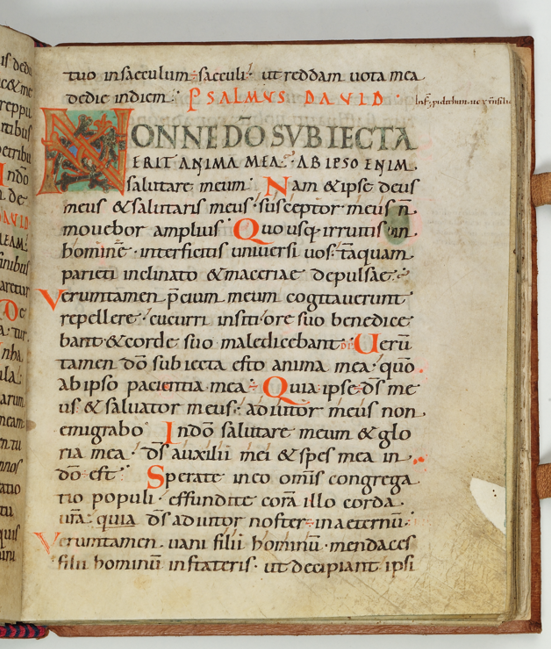 tuo insaeculum saeculi· ut reddam uota mea
dedie indiem· PSALMUS DAVID
NONNE DŌ SUBIECTA
ERIT ANIMA MEA· AB IPSO ENIM
salutare meum· Nam & ipse deus
meus & salutaris meus· susceptor meus n̄
mouebor amplius· Quo usq; irruitis in
hominē· interficitis uniuersi uos· tāquam
parieti inclinato & maceriae depulsae·
Verumtamen p̄cium meum cogitauerunt
repellere· cucurri insiti· ore suo benedice
bant & corde suo maledicebant· Uerū
tamen dō subiecta esto anima mea· quō
ab ipso pacientia mea· Quia ipse d̄s me
us & saluator meus· adiutor meus non
emigrabo Indō salutare meum & glo
ria mea· d̄s auxilii mei & spes mea in
dō est· Sperate in eo omīs congrega
tio populi· effundite corā illo corda
ur̄a· quia d̄s adiutor noster· in aeternū·
Verumtamen uani filii hominū· mendaces
filii hominū instateris· ut decipiant ipsi